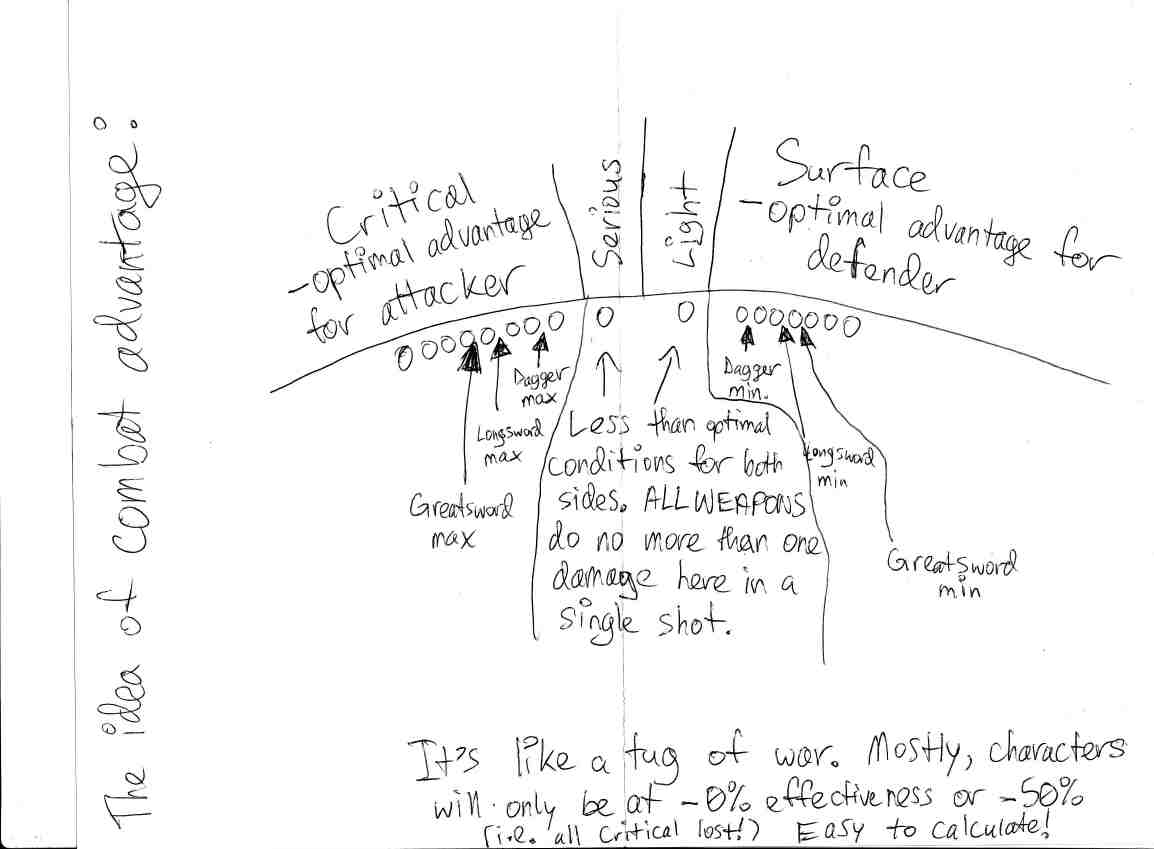 The idea of combat advantage:
Critical
-optimal advantage
for attacker
Serious
Light
Surface
-optimal advantage for
defender
Dagger
max
Longsword
max
Greatsword
max
Dagger
min.
Longsword
min
Greatsword
min
Less than optimal
conditions for both
sides. ALL WEAPONS
do no more than one
damage here in a
single shot.
It's like a tug of war. Mostly, characters
will only be at -0% effectiveness or -50%
(i.e. all Critical lost!) Easy to calculate!